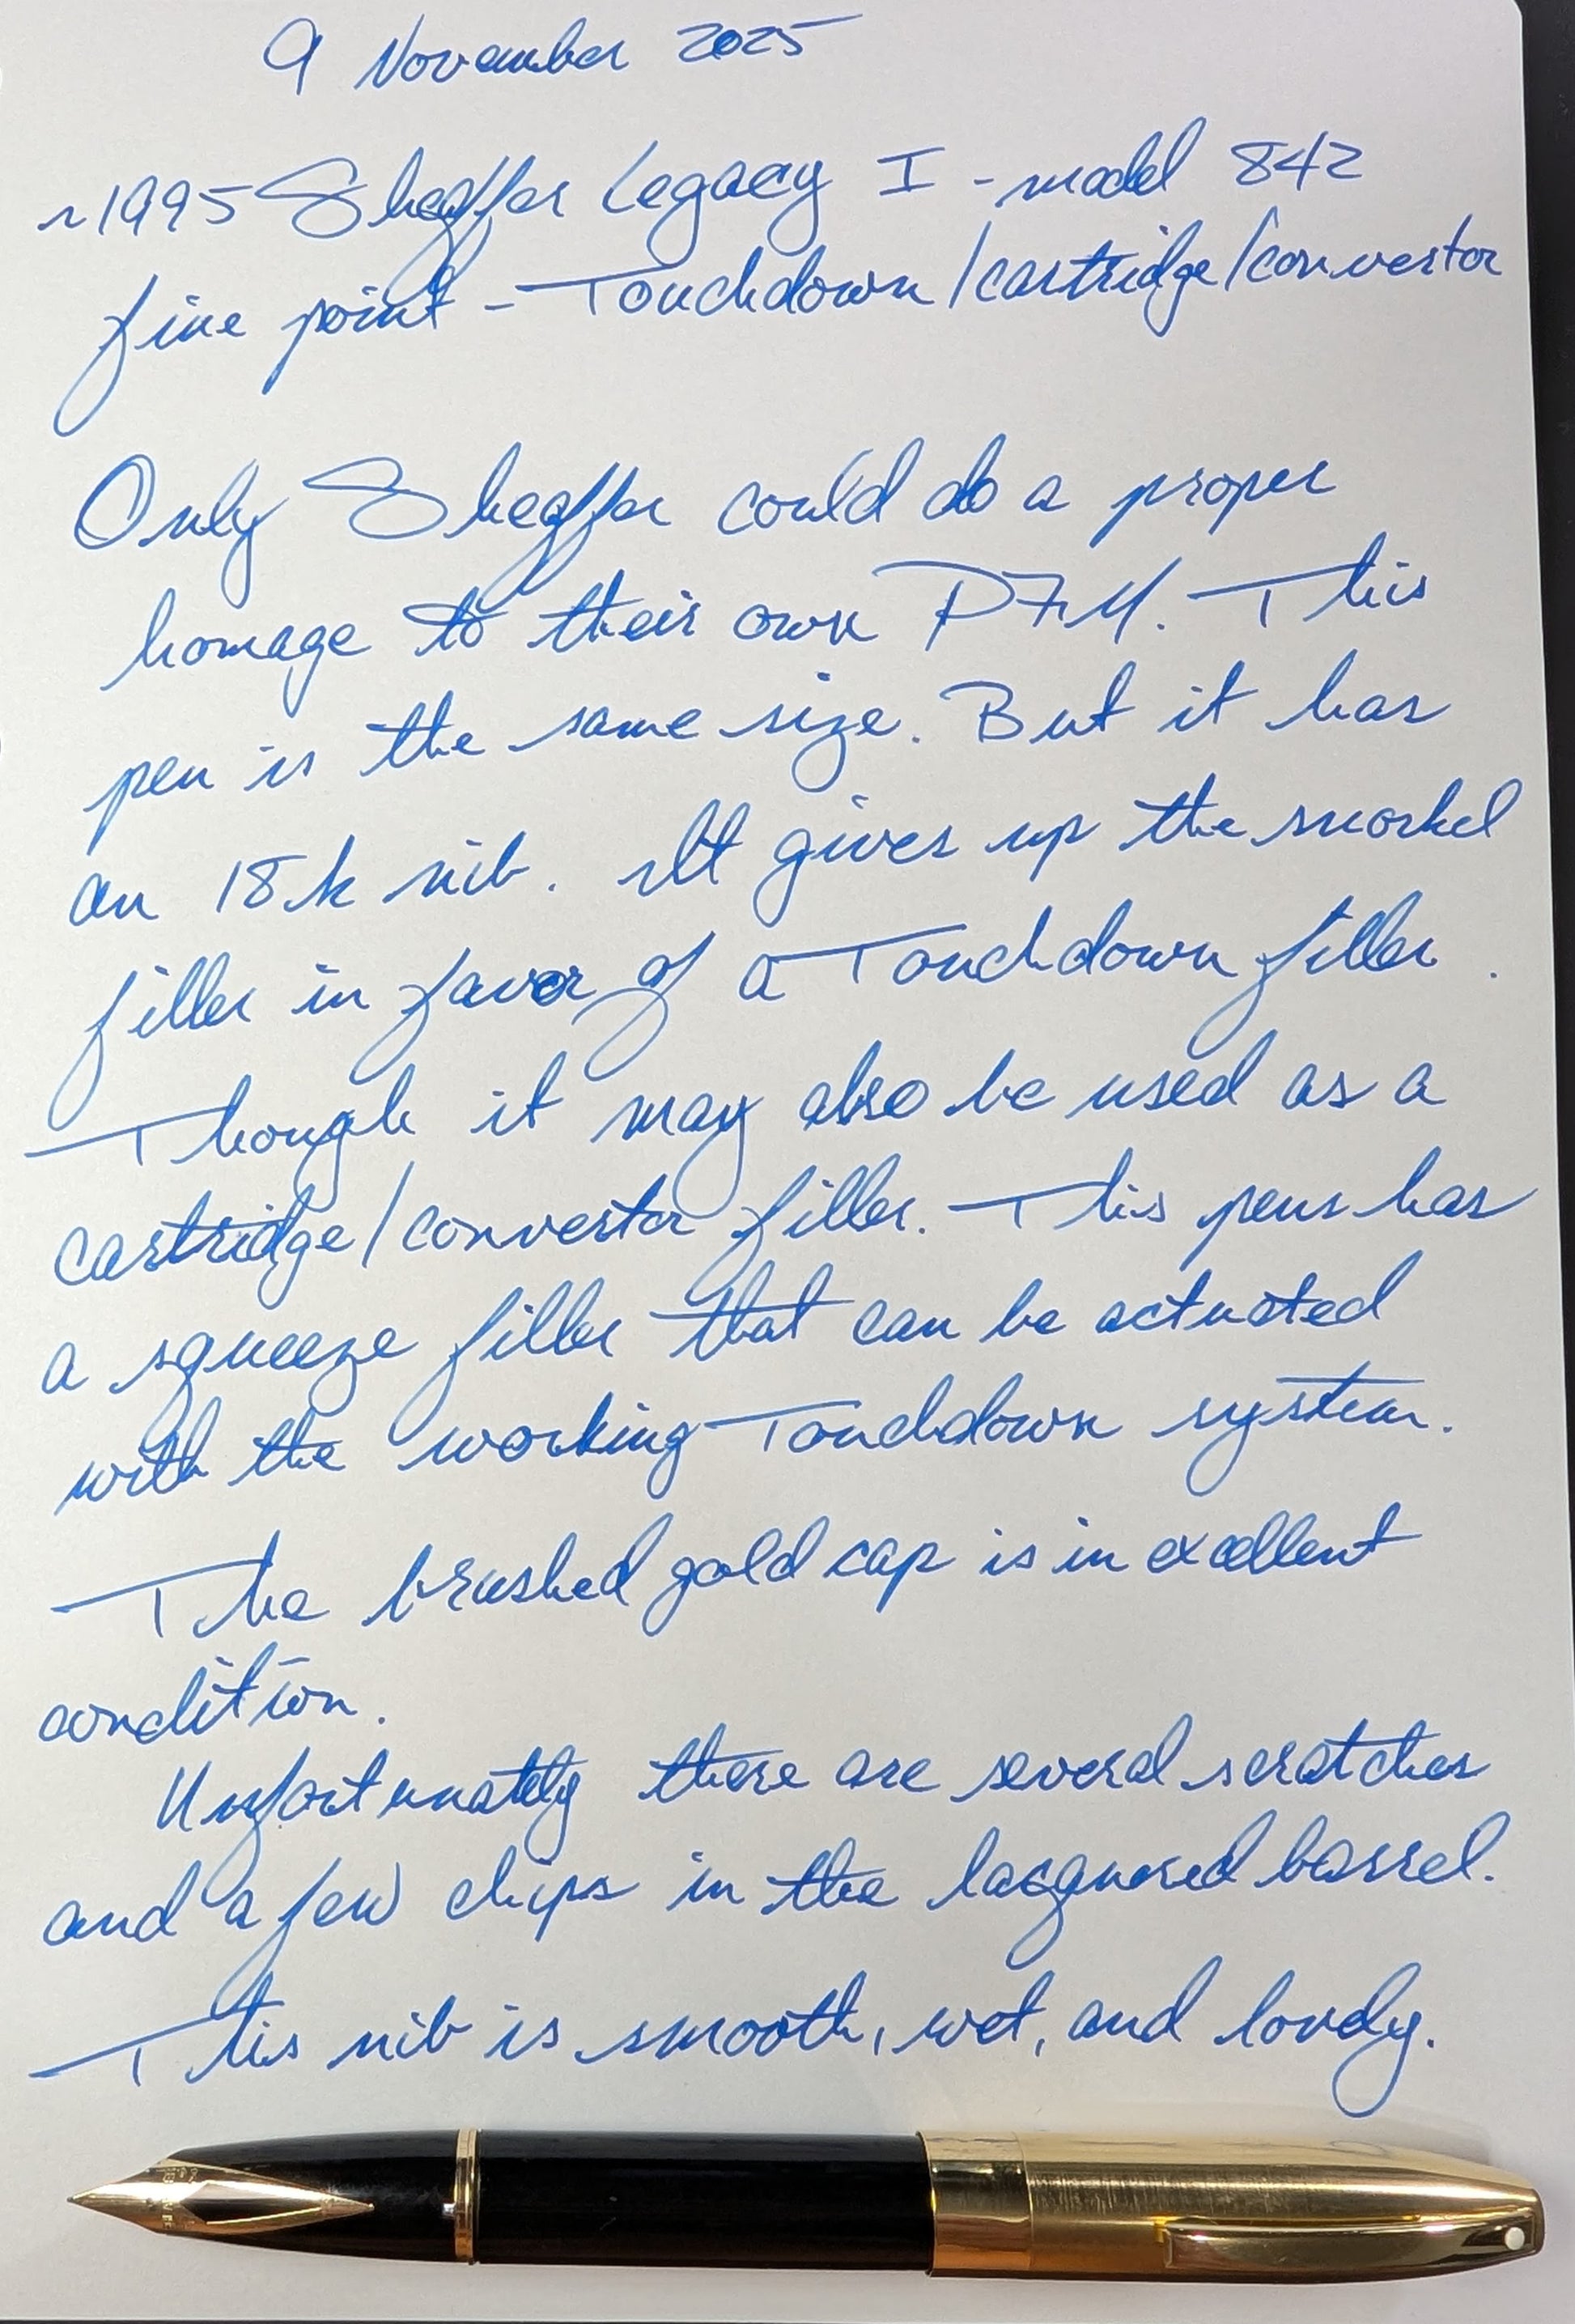 9 November 2025
~1995 Sheaffer Legacy I - model 842
fine point - Touchdown/cartridge/convertor
Only Sheaffer could do a proper
homage to their own PFM. This
pen is the same size. But it has
an 18k nib. It gives up the snorkel
filler in favor of a Touchdown filler.
Though it may also be used as a
cartridge/convertor filler. This pens has
a squeeze filler that can be actuated
with the working Touchdown system.
The brushed gold cap is in excellent
condition.
Unfortunately there are several scratches
and a few chips in the lacquered barrel.
This nib is smooth, wet, and lovely.